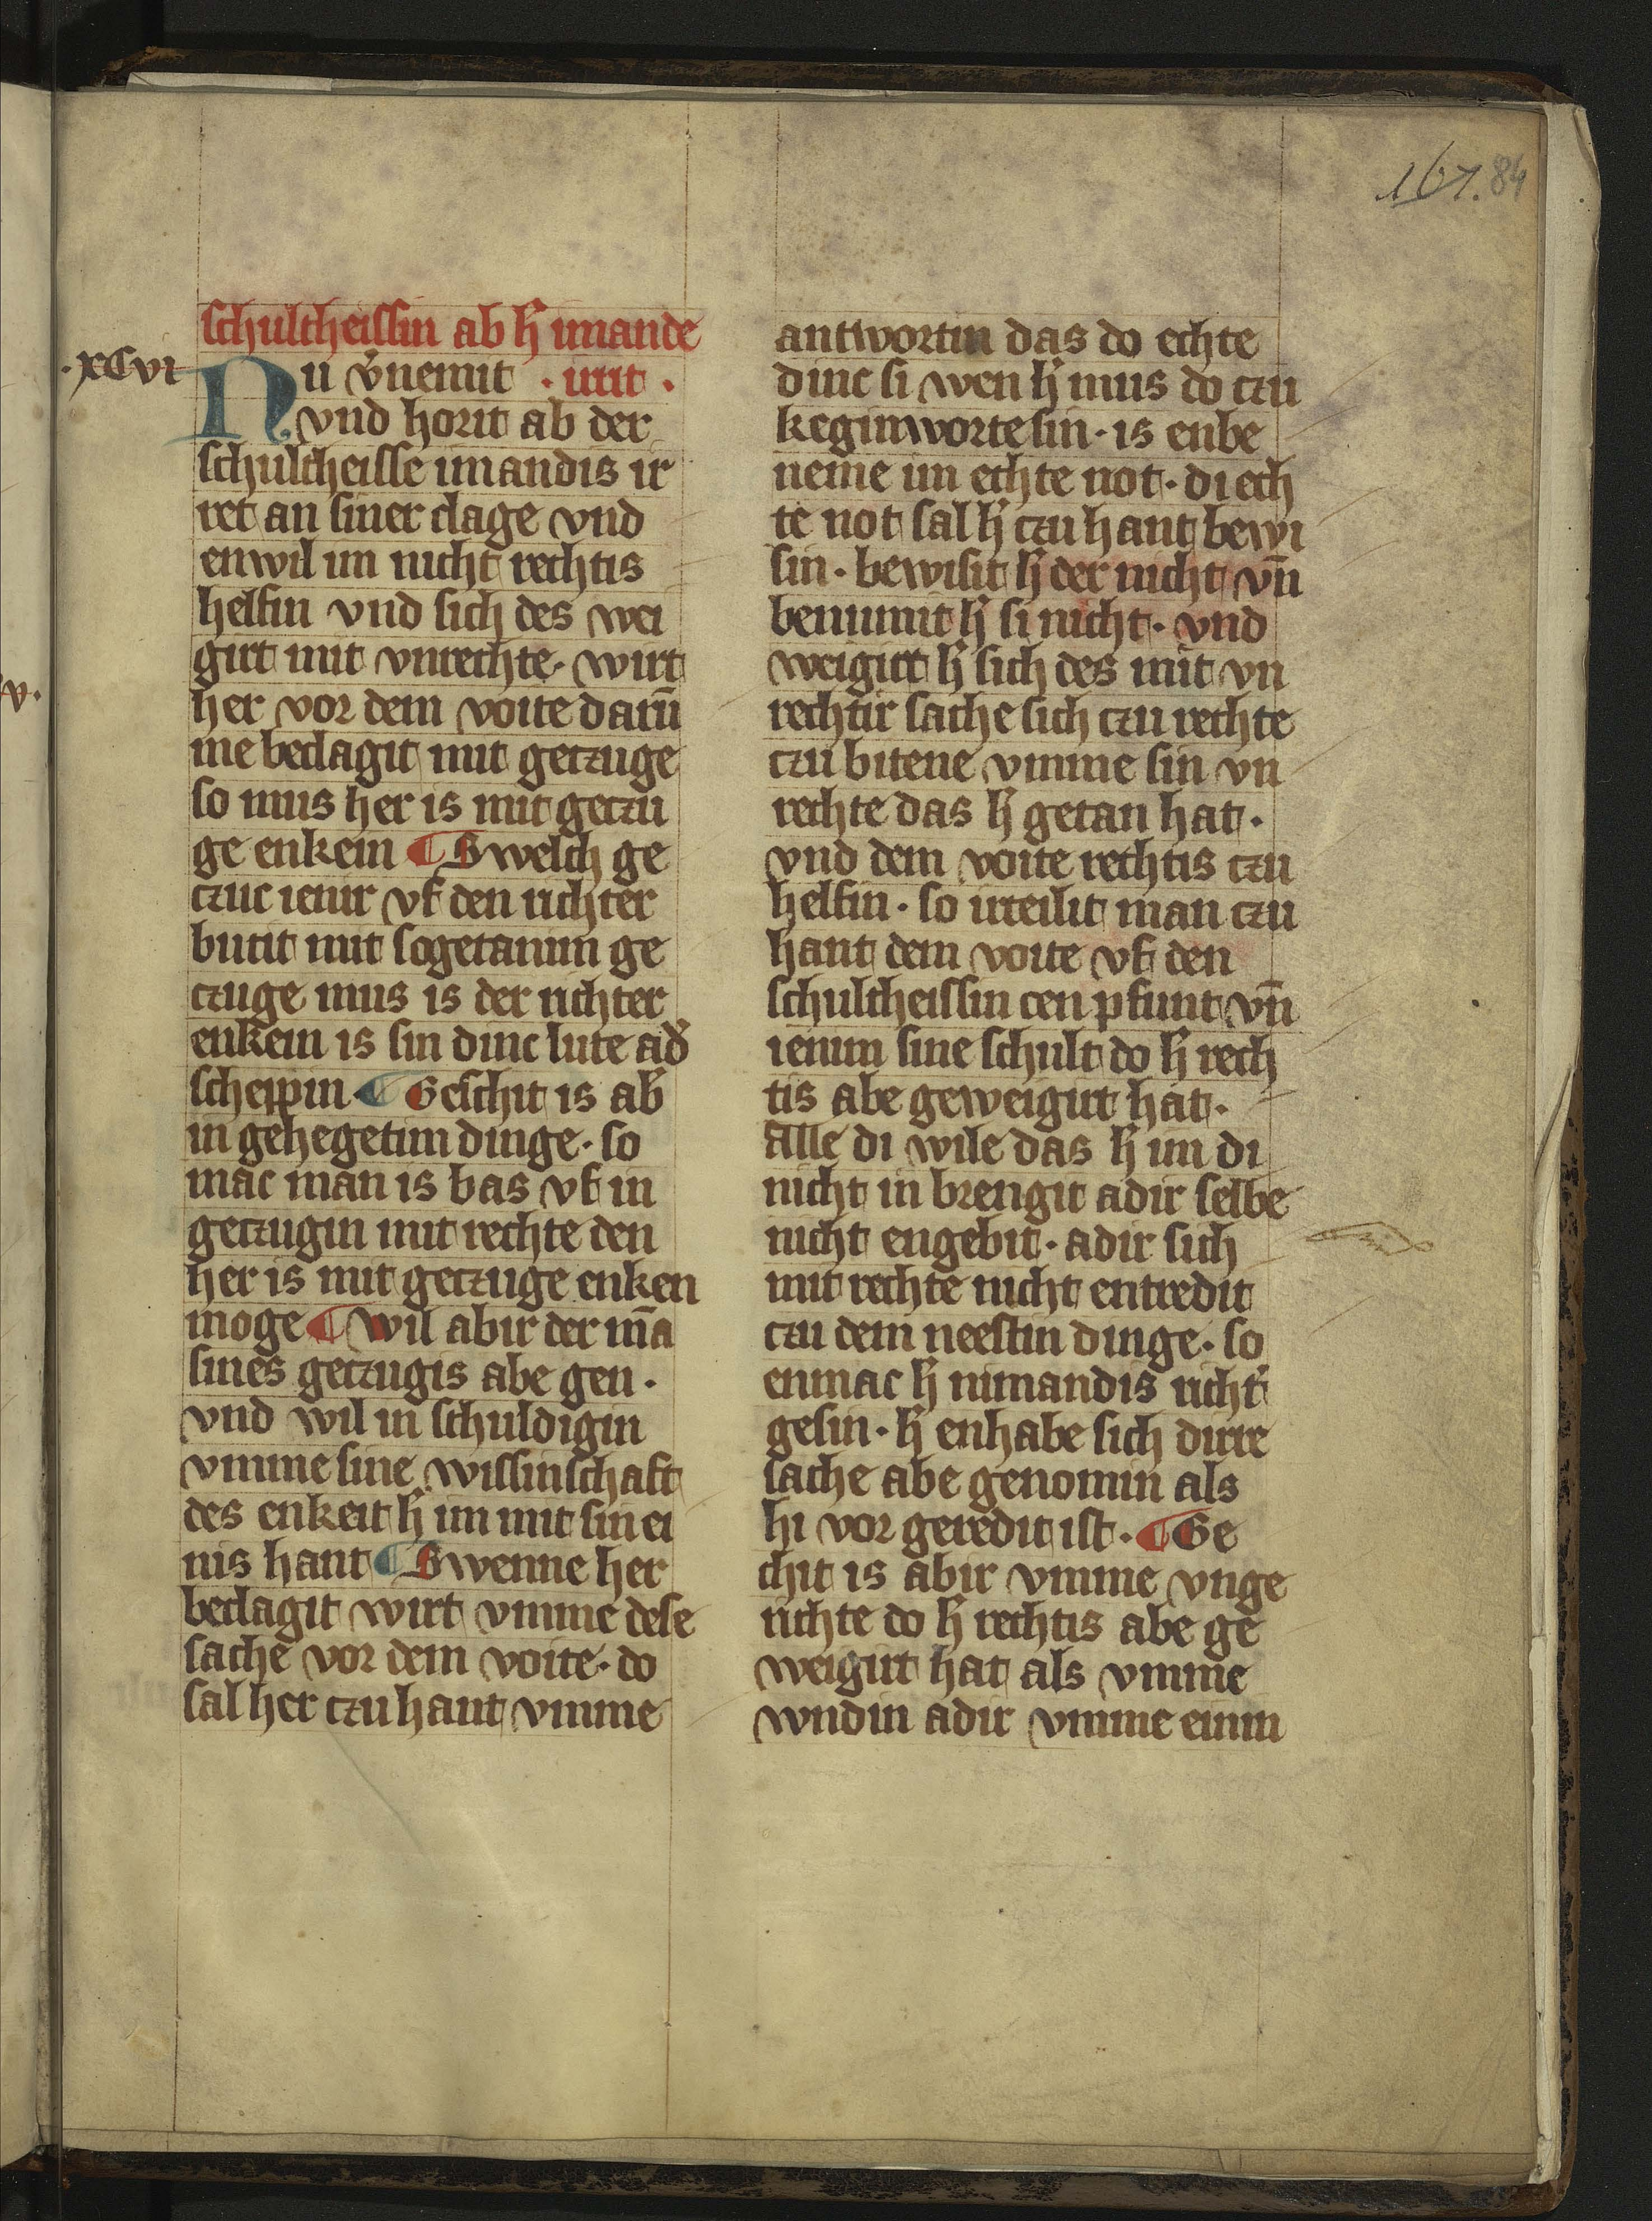 161. 84
schultheissin ab h̄ imande
·xCvi
Nu v̄nemit · irrit ·
vnd horit ab der
schultheisse imandis ir
ret an siner clage vnd
enwil im nicht rechtis
helfin vnd sich des wei
girt mit vnrechte· wirt
her vor dem voite darū
me beclagit mit geczuge
so mus her is mit geczu
ge enkein ¶ Swelch ge
czuc ienir vf den richter
butit mit sogetanim ge
czuge mus is der richter
enkein is sin dinc lute ad̄
scheppin ¶ Geschit is ab̄
in gehegetim dinge· so
mac man is bas vf in
geczugin mit rechte den
her is mit geczuge enken
moge ¶ wil abir der mā
sines geczugis abe gen·
vnd wil in schuldigin
vmme sine wissinschaft
des enkeit h̄ im mit sin ei
nis hant ¶ Swenne her
beclagit wirt vmme dese
sache vor dem voite· do
sal her czu hant vmme
antwortin das do echte
dinc si wen h̄ mus do czu
keginworte sin· is enbe
neme im echte not· di ech
te not sal h̄ czu hant bewi
sin· bewisit h̄ der nicht vn̄
benumit h̄ si nicht· vnd
weigirt h̄ sich des mit vn
rechtir sache sich czu rechte
czu bitene vmme sin vn
rechte das h̄ getan hat·
vnd dem voite rechtis czu
helfin· so irteilit man czu
hant dem voite vf den
schultheissin cen pfunt vn̄
ienim sine schult do h̄ rech
tis abe geweigirt hat·
alle di wile das h̄ im di
nicht in brengit adir selbe
nicht engebit· adir sich
mit rechte nicht entredit
czu dem neestin dinge· so
enmac h̄ nimandis richt̄
gesin· h̄ enhabe sich dirre
sache abe genomin als
hi vor geredit ist· ¶ Ge
chit is abir vmme vnge
richte do h̄ rechtis abe ge
weigirt hat als vmme
wndin adir vmme einin